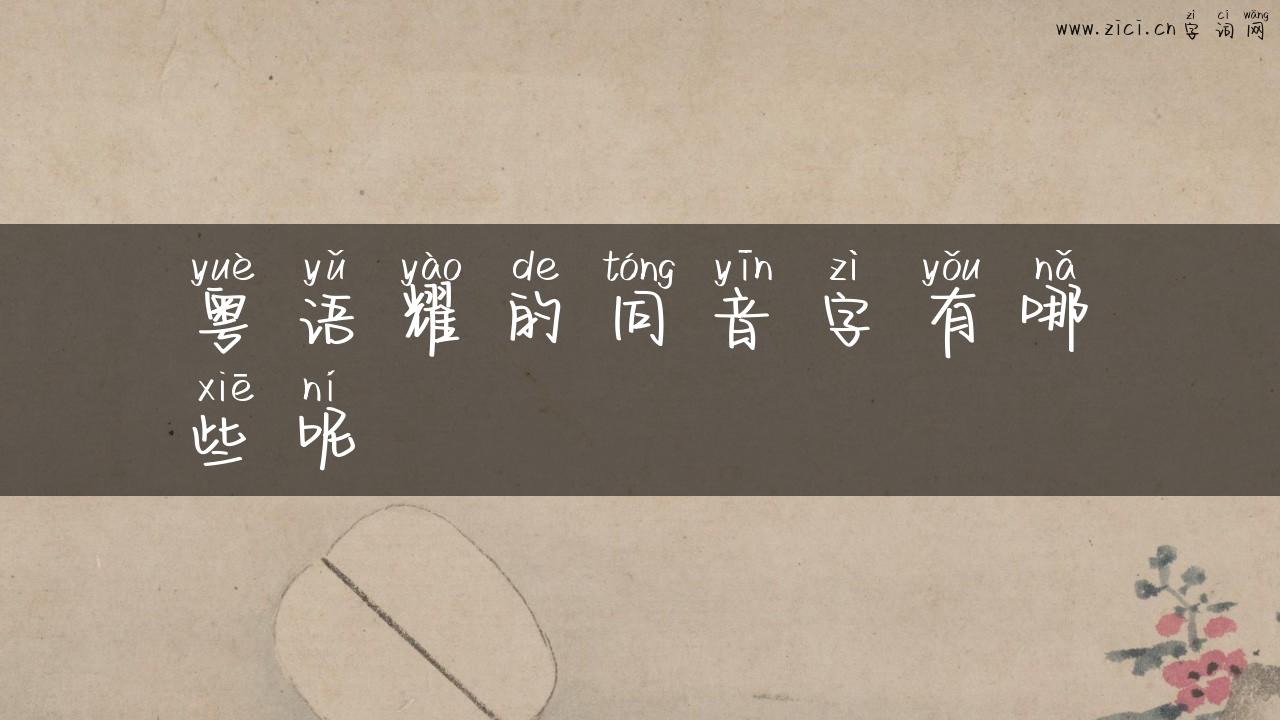 zì cí wǎng
www.zici.cn字词网
yuè yǔ yào de tóng yīn zì yǒu nǎ
粤语耀的同音字有哪
xiē ní
些呢